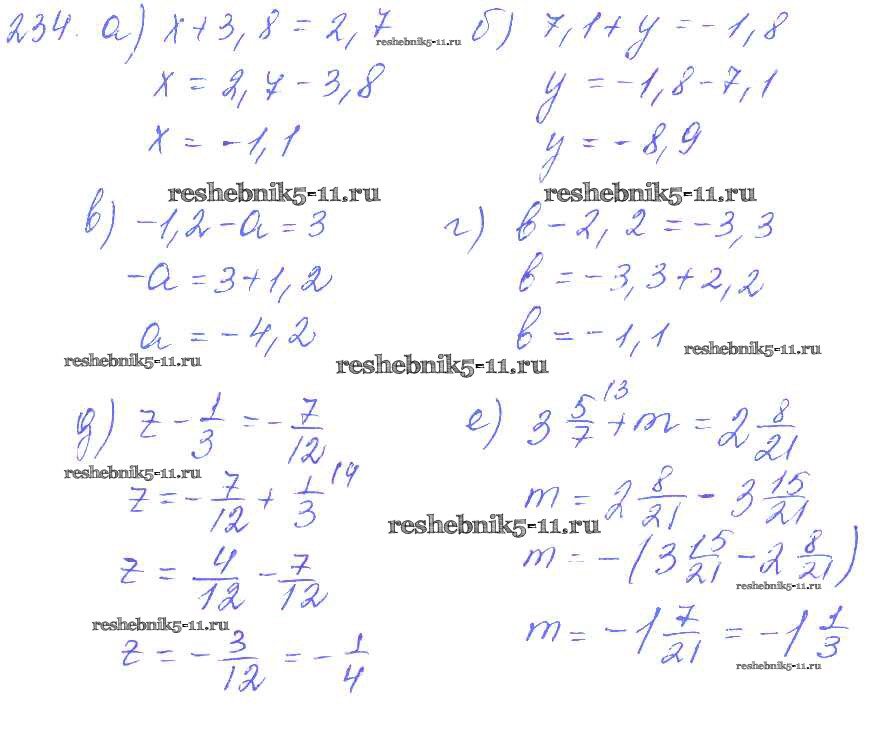 234. а) x + 3,8 = 2,7 б) 7,1 + y = -1,8
reshebnik5-11.ru
x = 2,7 - 3,8 y = -1,8 - 7,1
x = -1,1 y = -8,9
reshebnik5-11.ru reshebnik5-11.ru
в) -1,2 - a = 3 г) в - 2,2 = -3,3
-a = 3 + 1,2 в = -3,3 + 2,2
a = -4,2 в = -1,1
reshebnik5-11.ru reshebnik5-11.ru reshebnik5-11.ru
д) z - 1/3 = -7/12 е) 3 5/7 ⁽³ + m = 2 8/21
reshebnik5-11.ru
z = -7/12 + 1/3 ⁽⁴ m = 2 8/21 - 3 15/21
reshebnik5-11.ru
z = 4/12 - 7/12 m = -(3 15/21 - 2 8/21)
reshebnik5-11.ru
reshebnik5-11.ru
z = -3/12 = -1/4 m = -1 7/21 = -1 1/3
reshebnik5-11.ru